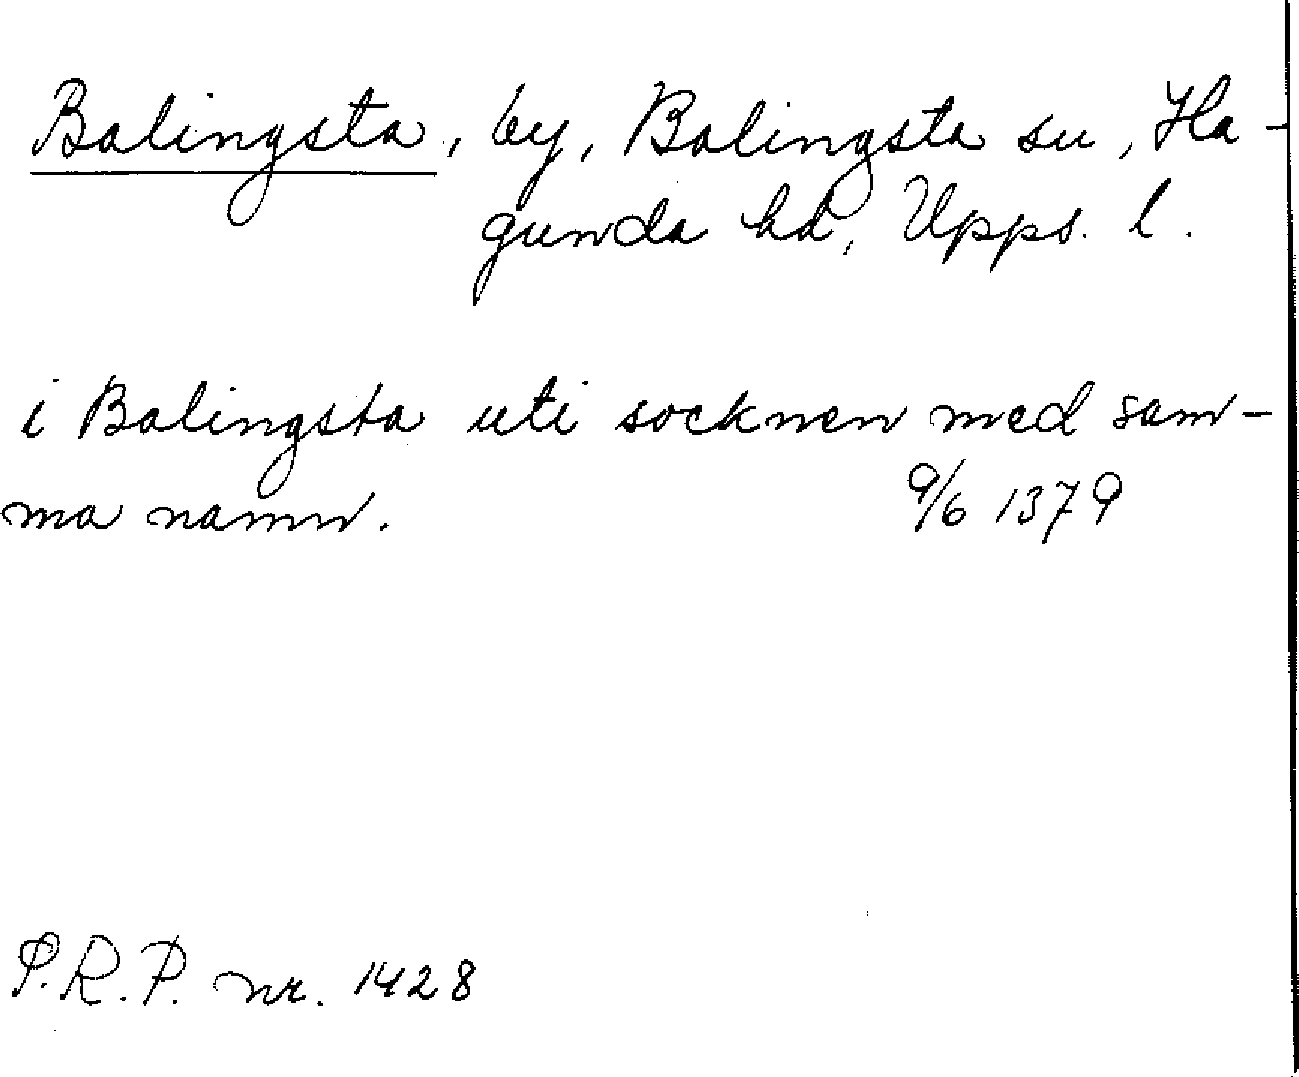 Balingsta, by, Balingsta sn, Ha-
gunda hd, Upps. l.
i Balingsta uti socknen med sam-
ma namn. 9/6 1379
S.R.P. nr. 1428